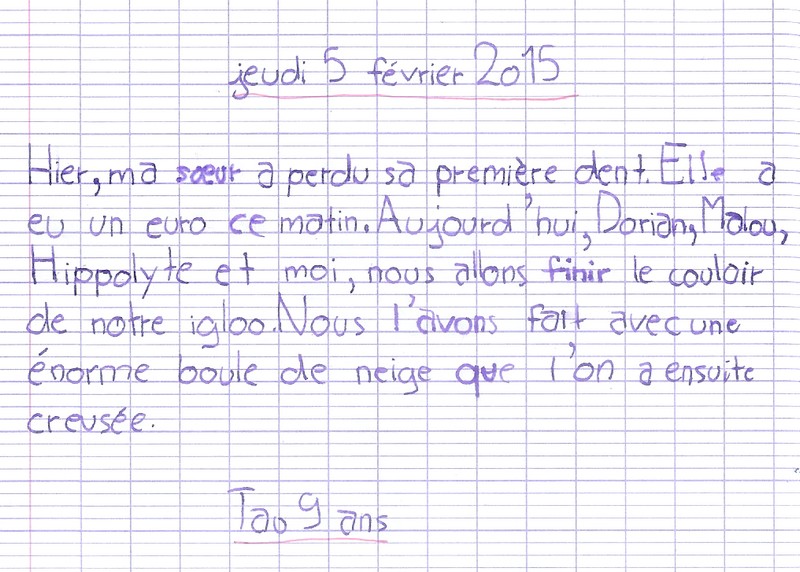 jeudi 5 février 2015
Hier, ma sœur a perdu sa première dent. Elle a
eu un euro ce matin. Aujourd'hui, Dorian, Malou,
Hippolyte et moi, nous allons finir le couloir
de notre igloo. Nous l'avons fait avec une
énorme boule de neige que l'on a ensuite
creusée.
Tao 9 ans